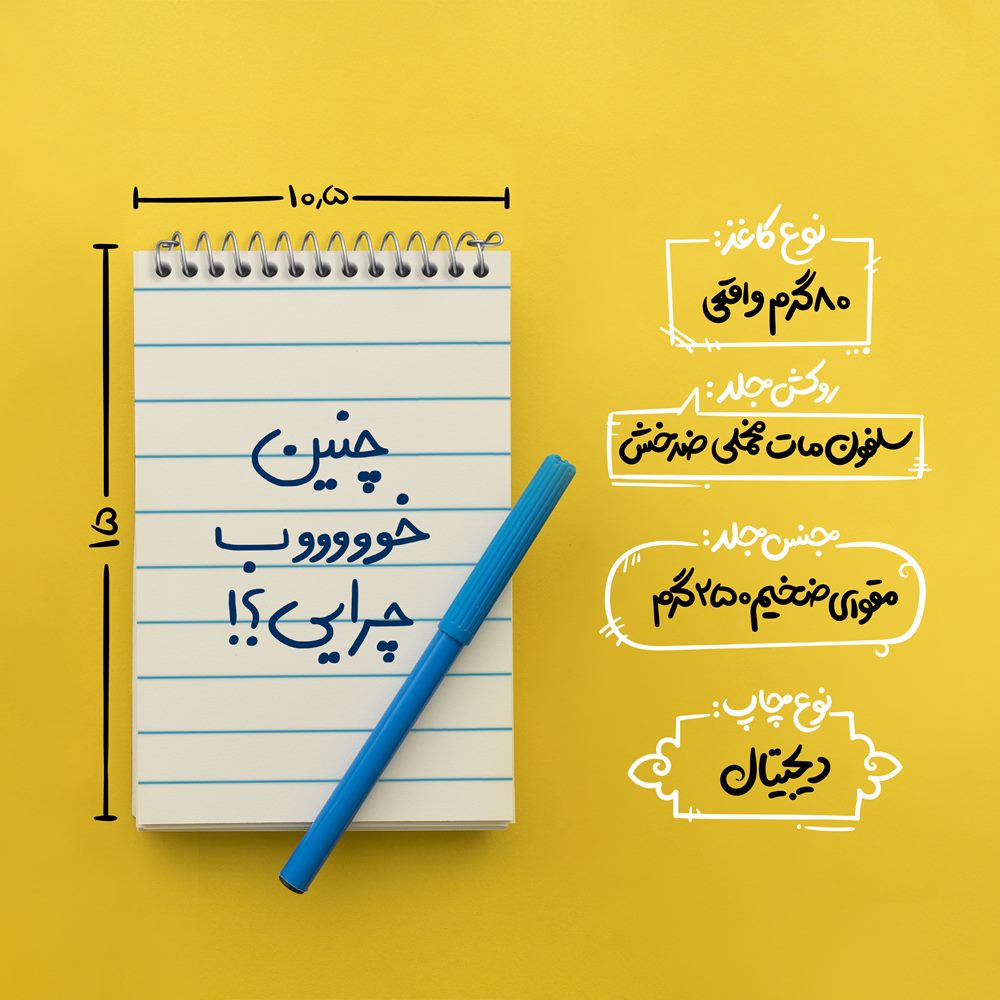 ۱۰٫۵
۱۵
چنین
خووووووب
چرایی؟!
نوع کاغذ:
۸۰ گرم واقعی
روکش جلد:
سلفون مات مخملی ضدخش
جنس جلد:
مقوای ضخیم ۲۵۰ گرم
نوع چاپ:
دیجیتال